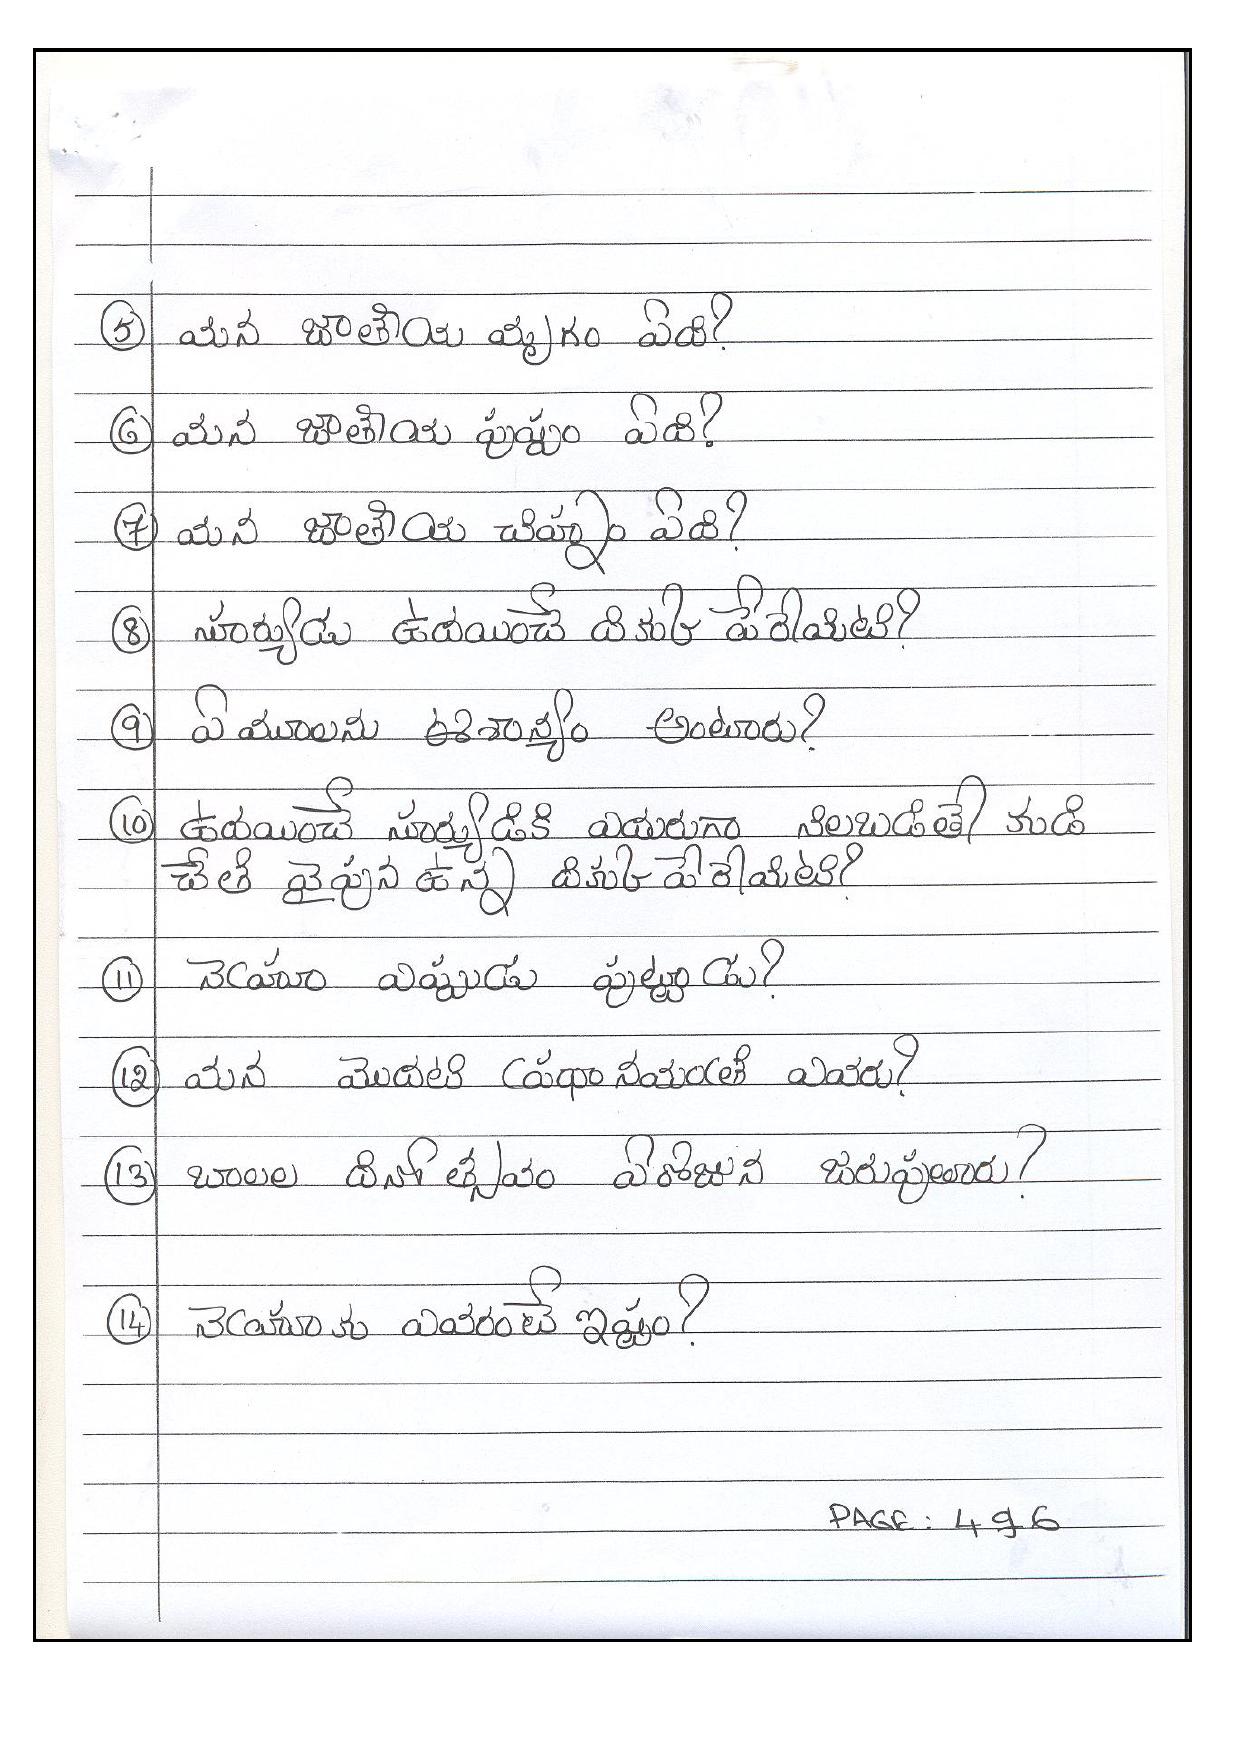 5 మన జాతీయ మృగం ఏది?
6 మన జాతీయ పుష్పం ఏది?
7 మన జాతీయ చిహ్నం ఏది?
8 సూర్యుడు ఉదయించే దిక్కు పేరేమిటి?
9 ఏ మూలను ఈశాన్యం అంటారు?
10 ఉదయించే సూర్యుడికి ఎదురుగా నిలబడితే కుడి
చేతి వైపున ఉన్న దిక్కు పేరేమిటి?
11 నెహ్రూ ఎప్పుడు పుట్టాడు?
12 మన మొదటి ప్రధానమంత్రి ఎవరు?
13 బాలల దినోత్సవం ఏరోజున జరుపుతారు?
14 నెహ్రూకు ఎవరంటే ఇష్టం?
PAGE: 496